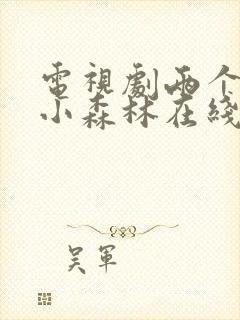 電視劇兩个
小森林在綫
吴軍